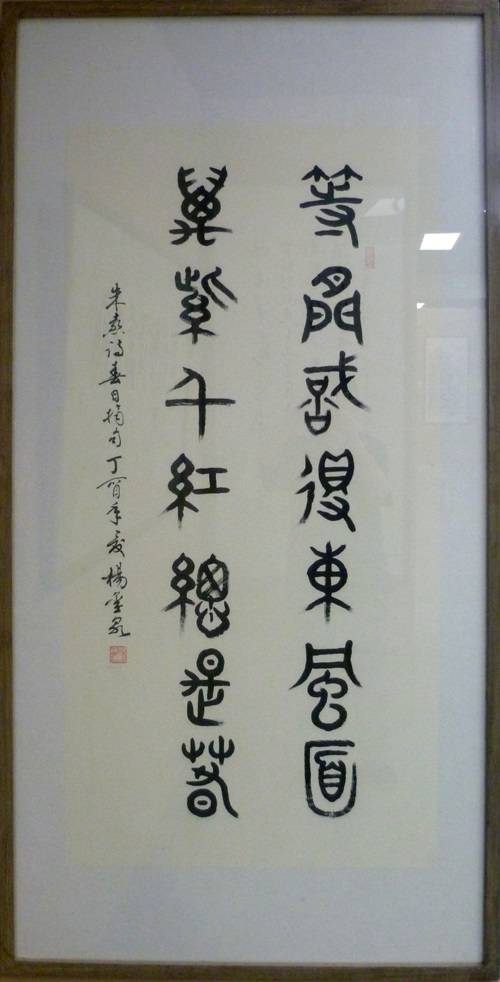 等閒識得東風面
萬紫千紅總是春
朱熹詩春日摘句丁酉年夏楊